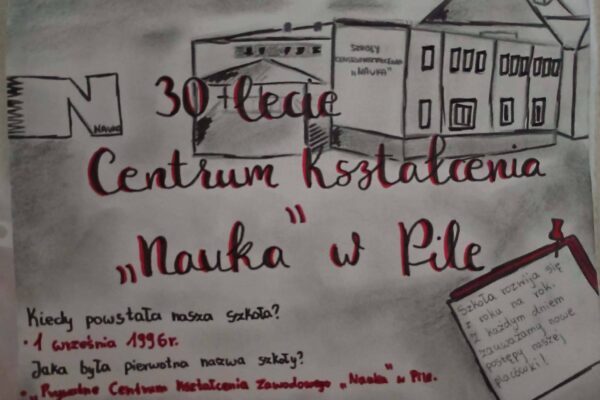 SZKOŁY
"NAUKA"
NAUKA
30-lecie
Centrum Kształcenia
„Nauka" w Pile
Kiedy powstała nasza szkoła?
• 1 września 1996r.
Jaka była pierwotna nazwa szkoły?
• „Prywatne Centrum Kształcenia Zawodowego „Nauka" w Pile.
Szkoła rozwija się
z roku na rok.
Z każdym dniem
zauważamy nowe
postępy naszej
placówki!